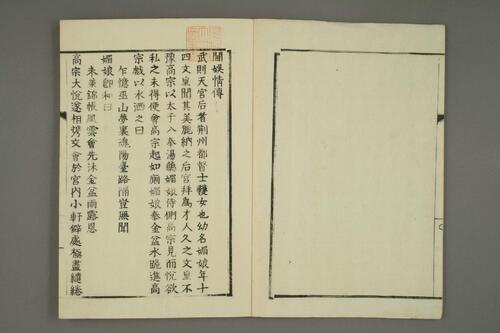 閫娛情傳
武則天宮后者荆州都督士彠女也幼名媚娘年十
四文皇聞其美麗納之后宮拜為才人久之文皇不
豫高宗以太子入奉湯藥媚娘侍側高宗見而悅欲
私之未得便會高宗起如廁媚娘奉金盆水跪進高
宗戲以水洒之曰
乍憶巫山夢裏魂陽臺路隔豈無聞
媚娘即和曰
未承錦帳風雲會先沐金盆雨露恩
高宗大悅遂相携交會於宮內小軒僻處極盡繾綣